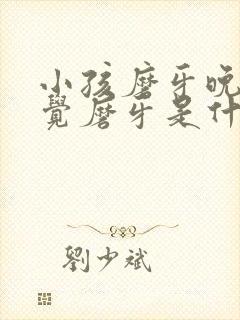 小孩磨牙晚
覺磨牙是什
劉少斌